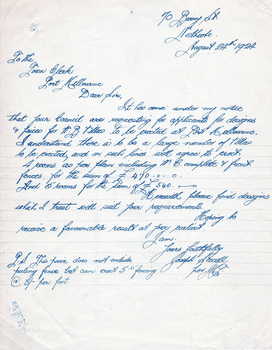 70 Barry St
Northcote
August 25th 1924
To the
Town Clerk
Port Melbourne
Dear Sir,
It has come under my notice
that your Council are requesting for applicants for designs
& price for W.B Villas to be erected at Port Melbourne.
I understand there is to be a large number of Villas
to be erected, and on such lines will agree to erect
4 rooms as per plan including W.C complete & front
fences for the sum of £ 490
And 5 rooms for the sum of £ 540
Herewith please find designs
which I trust will suit your requirements.
Hoping to
receive a favourable result at your
I am.
Yours faithfully
Joseph
P.S. This price does not include
paling fence but can erect 5'
@ per foot